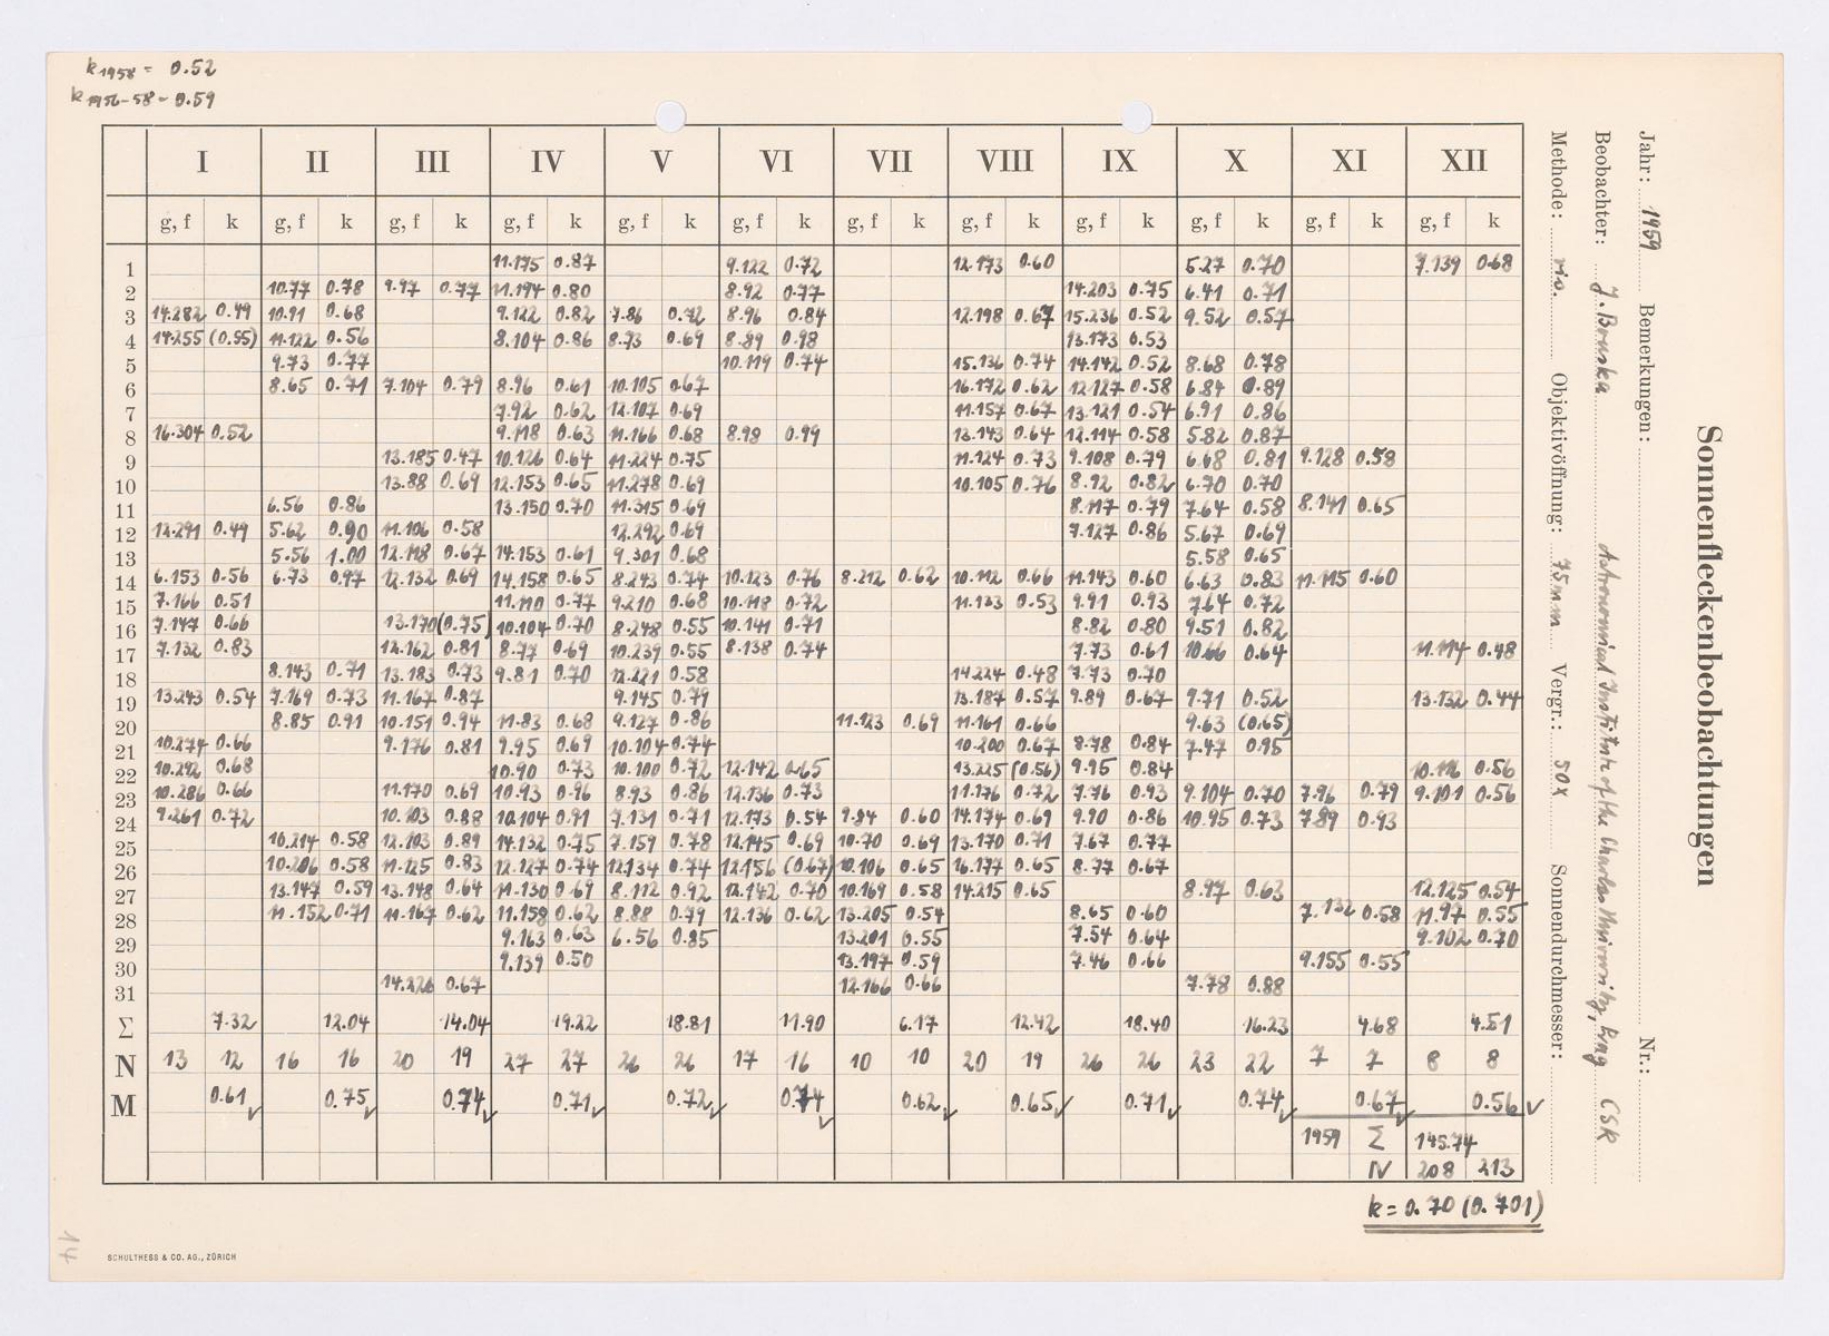 k 1958 = 0.52
k 1956-58 = 0.59
Sonnenfleckenbeobachtungen
Jahr: 1959 Bemerkungen: Nr.:
Beobachter: J. Bouska Astronomical Institute of the Charles University, Prag CSR
Methode: vis. Objektivöffnung: 75 mm Vergr.: 50x Sonnendurchmesser:
I II III IV V VI VII VIII IX X XI XII
g, f k g, f k g, f k g, f k g, f k g, f k g, f k g, f k g, f k g, f k g, f k g, f k
1 11.175 0.87 9.122 0.72 12.173 0.60 5.27 0.70 7.139 0.68
2 10.77 0.78 9.97 0.77 11.194 0.80 8.92 0.77 14.203 0.75 6.41 0.71
3 14.282 0.49 10.91 0.68 9.122 0.82 7.86 0.72 8.96 0.84 12.198 0.67 15.236 0.52 9.52 0.57
4 14.255 (0.55) 11.122 0.56 8.104 0.86 8.73 0.69 8.89 0.98 13.173 0.53
5 9.73 0.77 10.119 0.74 15.136 0.74 14.142 0.52 8.68 0.78
6 8.65 0.71 7.104 0.79 8.96 0.61 10.105 0.67 16.172 0.62 12.127 0.58 6.84 0.89
7 7.92 0.62 12.107 0.69 11.157 0.67 13.121 0.54 6.91 0.86
8 16.304 0.52 9.118 0.63 11.166 0.68 8.98 0.99 13.143 0.64 12.114 0.58 5.82 0.87
9 13.185 0.47 10.126 0.64 11.224 0.75 11.124 0.73 9.108 0.79 6.68 0.81 9.128 0.58
10 13.88 0.69 12.153 0.65 11.278 0.69 10.105 0.76 8.92 0.82 6.70 0.70
11 6.56 0.86 13.150 0.70 11.315 0.69 8.117 0.79 7.64 0.58 8.141 0.65
12 12.291 0.49 5.62 0.90 11.106 0.58 12.292 0.69 7.127 0.86 5.67 0.69
13 5.56 1.00 12.118 0.67 14.153 0.61 9.301 0.68 5.58 0.65
14 6.153 0.56 6.73 0.97 12.132 0.69 14.158 0.65 8.243 0.74 10.123 0.76 8.212 0.62 10.112 0.66 11.143 0.60 6.63 0.83 11.115 0.60
15 7.166 0.51 11.110 0.77 9.210 0.68 10.118 0.72 11.133 0.53 9.91 0.93 7.64 0.72
16 7.147 0.66 13.170 (0.75) 10.104 0.70 8.248 0.55 10.141 0.71 8.82 0.80 9.51 0.82
17 7.132 0.83 12.162 0.81 8.77 0.69 10.239 0.55 8.138 0.74 7.73 0.61 10.66 0.64 11.114 0.48
18 8.143 0.71 13.183 0.73 9.81 0.70 12.221 0.58 14.224 0.48 7.73 0.70
19 13.243 0.54 7.169 0.73 11.167 0.87 9.145 0.79 13.187 0.57 9.89 0.67 9.71 0.52 13.132 0.44
20 8.85 0.91 10.151 0.94 11.83 0.68 9.127 0.86 11.123 0.69 11.161 0.66 9.63 (0.65)
21 10.274 0.66 9.176 0.81 9.95 0.69 10.104 0.74 10.200 0.67 8.78 0.84 7.47 0.95
22 10.292 0.68 10.90 0.73 10.100 0.72 12.142 0.65 13.225 (0.56) 9.95 0.84 10.116 0.56
23 10.286 0.66 11.170 0.69 10.93 0.96 8.93 0.86 12.136 0.73 11.176 0.72 7.76 0.93 9.104 0.70 7.96 0.79 9.101 0.56
24 9.261 0.72 10.103 0.88 10.104 0.91 7.131 0.71 12.173 0.54 9.84 0.60 14.174 0.69 9.90 0.86 10.95 0.73 7.89 0.93
25 10.214 0.58 12.103 0.89 14.132 0.75 7.159 0.78 12.145 0.69 10.70 0.69 13.170 0.71 7.67 0.77
26 10.206 0.58 11.125 0.83 12.127 0.74 12.134 0.74 12.156 (0.67) 10.106 0.65 16.177 0.65 8.77 0.67
27 13.147 0.59 13.148 0.64 11.130 0.69 8.112 0.92 12.142 0.70 10.169 0.58 14.215 0.65 8.97 0.63 12.125 0.54
28 11.152 0.71 11.167 0.62 11.158 0.62 8.88 0.79 12.136 0.62 13.205 0.54 8.65 0.60 7.132 0.58 11.97 0.55
29 9.163 0.63 6.56 0.85 13.201 0.55 7.54 0.64 9.102 0.70
30 9.139 0.50 13.197 0.59 7.46 0.66 9.155 0.55
31 14.226 0.67 12.166 0.66 7.78 0.88
Σ 7.32 12.04 14.04 19.22 18.81 11.90 6.17 12.42 18.40 16.23 4.68 4.51
N 13 12 16 16 20 19 27 27 26 26 17 16 10 10 20 19 26 26 23 22 7 7 8 8
M 0.61 0.75 0.74 0.71 0.72 0.74 0.62 0.65 0.71 0.74 0.67 0.56
1959 Σ 145.74
N 208 213
k = 0.70 (0.701)
14
SCHULTHESS & CO. AG., ZÜRICH